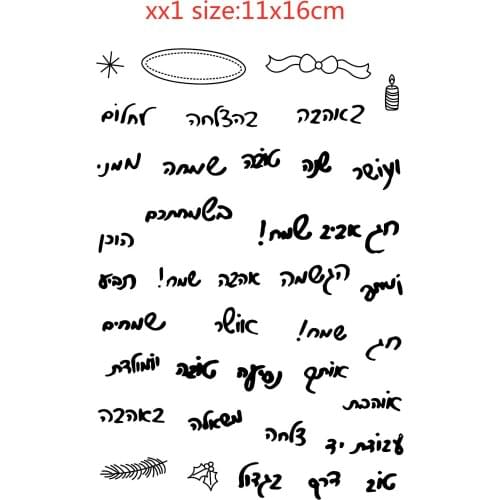 xx1 size:11x16cm
באהבה בהצלחה לחלום
ועושר שנה טובה שמחה ממני
בשמחתכם
חג אביב שמח! הוכן
הגשמה אהבה שמח! תביע
שמח! אושר שמחים
חג
אותך נסיעה טובה יומולדת
אוהבת משאלה באהבה
עבודת יד צלחה
טוב דרך בגדול